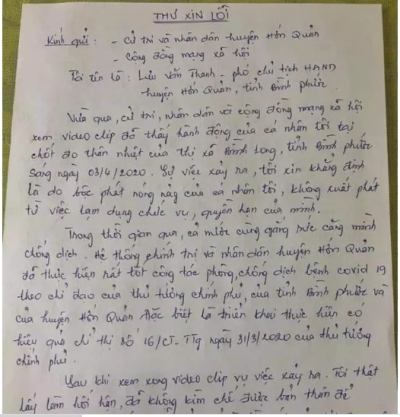 THƯ XIN LỖI
Kính gửi: - Cử tri và nhân dân huyện Hớn Quản
- Cộng đồng mạng xã hội
Tôi tên là: Lưu Văn Thanh - phó chủ tịch HĐND
huyện Hớn Quản, tỉnh Bình phước.
Vừa qua, cử tri, nhân dân và cộng đồng mạng xã hội
xem video clip đã thấy hành động của cá nhân tôi tại
chốt đo thân nhiệt của thị xã Bình Long, tỉnh Bình phước
Sáng ngày 03/4/2020. Sự việc xảy ra, tôi xin khẳng định
là do bộc phát nóng nảy của cá nhân tôi, không xuất phát
từ việc lạm dụng chức vụ, quyền hạn của mình.
Trong thời gian qua, cả nước cùng gắng sức căng mình
chống dịch. Hệ thống chính trị và nhân dân huyện Hớn Quản
đã thực hiện rất tốt công tác phòng, chống dịch bệnh covid 19
theo chỉ đạo của thủ tướng chính phủ, của tỉnh Bình Phước và
của huyện Hớn Quản đặc biệt là triển khai thực hiện có
hiệu quả chỉ thị số 16/CT-TTg ngày 31/3/2020 của thủ tướng
chính phủ.
Sau khi xem xong video clip vụ việc xảy ra. Tôi thật
lấy làm hối hận, đã không kìm chế được bản thân để